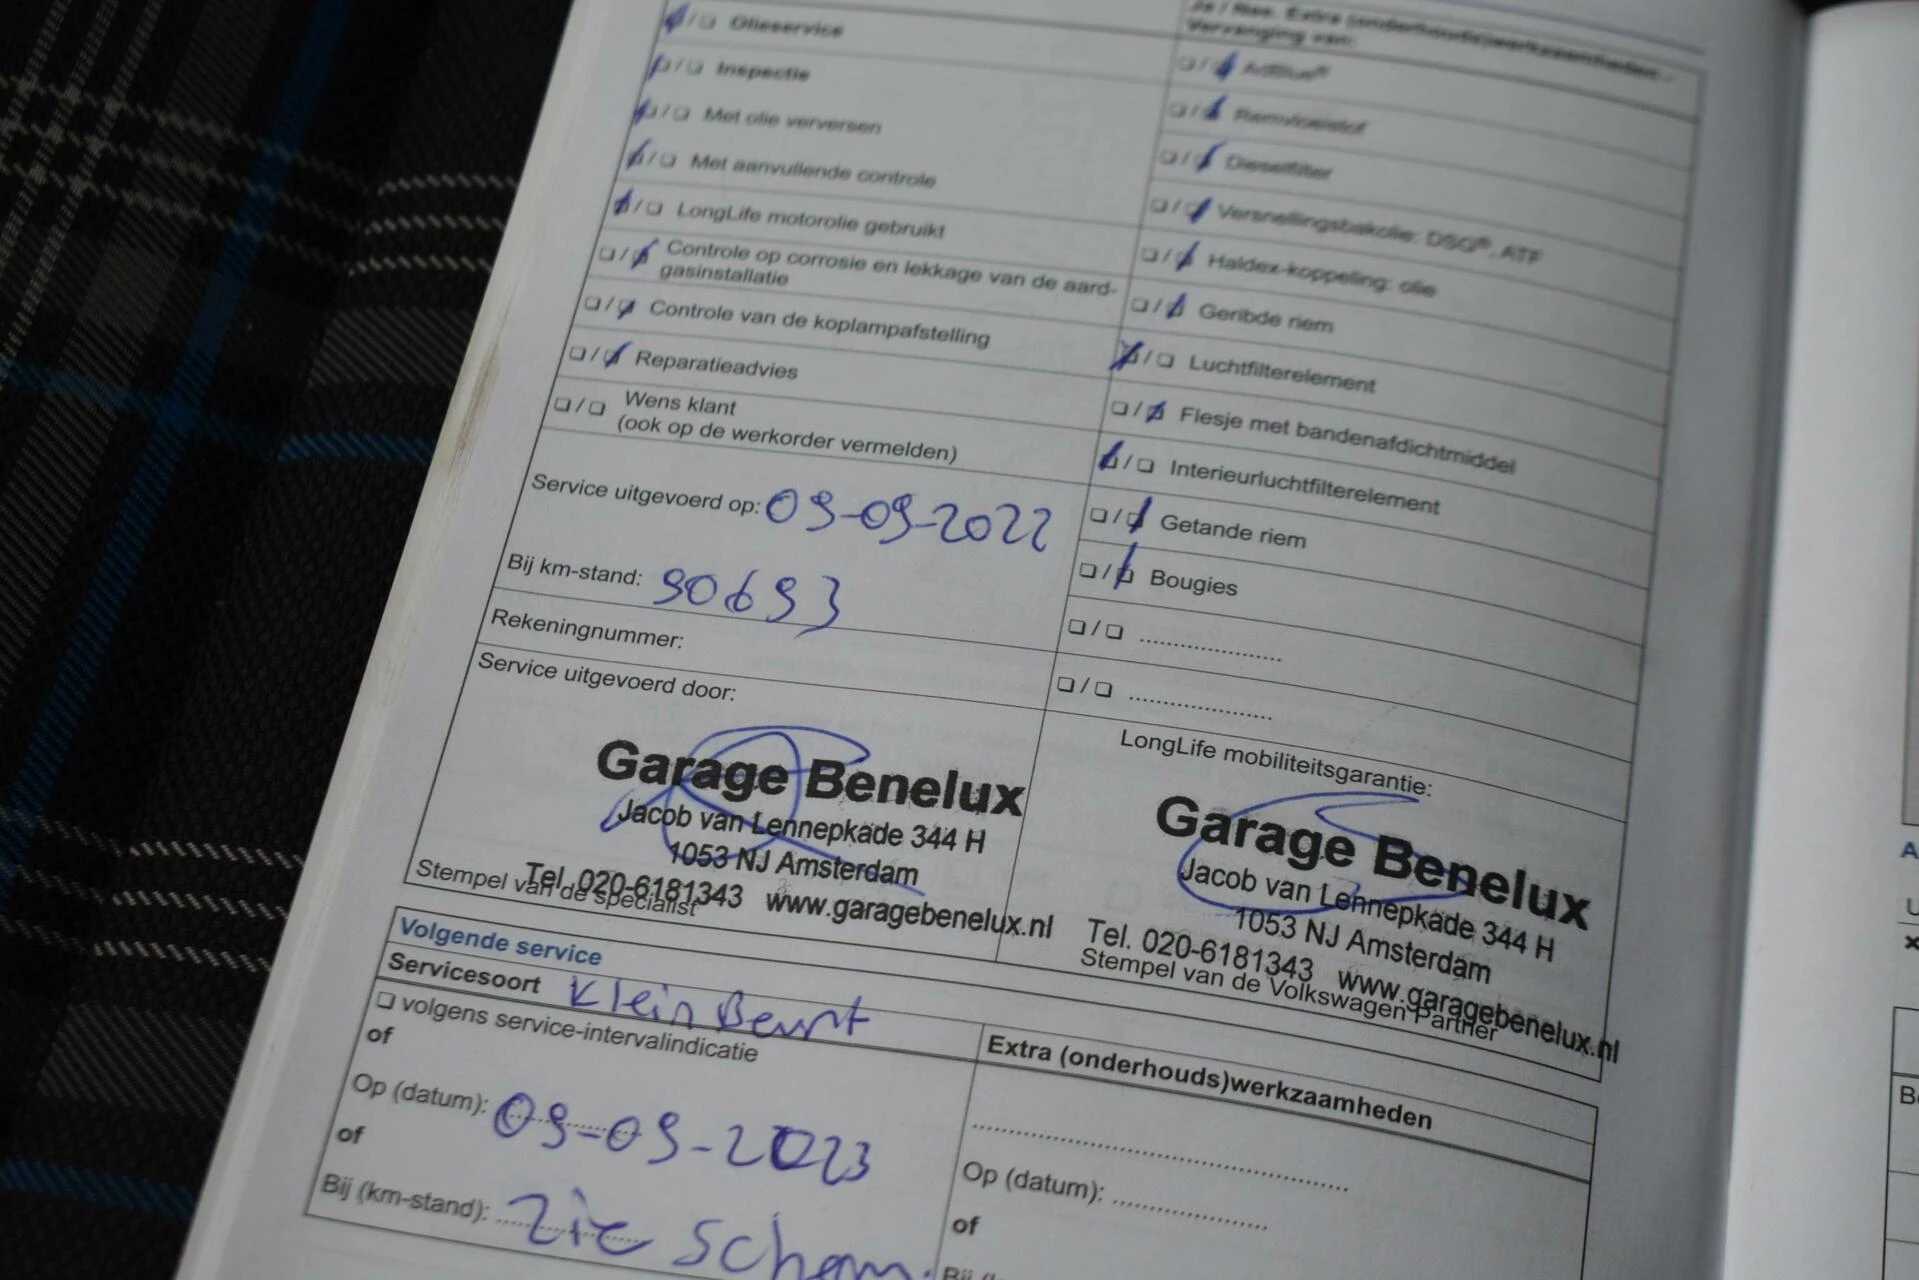 ❏/❏ Olieservice
❏/❏ Inspectie
❏/❏ Met olie verversen
❏/❏ Met aanvullende controle
❏/❏ LongLife motorolie gebruikt
❏/❏ Controle op corrosie en lekkage van de aard-
gasinstallatie
❏/❏ Controle van de koplampafstelling
❏/❏ Reparatieadvies
❏/❏ Wens klant
(ook op de werkorder vermelden)
Service uitgevoerd op: 09-09-2022
Bij km-stand: 90693
Rekeningnummer:
Service uitgevoerd door:
Garage Benelux
Jacob van Lennepkade 344 H
1053 NJ Amsterdam
Tel. 020-6181343 www.garagebenelux.nl
Stempel van de specialist
Ja / Nee. Extra (onderhouds)werkzaamheden -
Vervanging van:
❏/❏ AdBlue®
❏/❏ Remvloeistof
❏/❏ Dieselfilter
❏/❏ Versnellingsbakolie: DSG®, ATF
❏/❏ Haldex-koppeling: olie
❏/❏ Geribde riem
❏/❏ Luchtfilterelement
❏/❏ Flesje met bandenafdichtmiddel
❏/❏ Interieurluchtfilterelement
❏/❏ Getande riem
❏/❏ Bougies
❏/❏ ....................
❏/❏ ....................
LongLife mobiliteitsgarantie:
Garage Benelux
Jacob van Lennepkade 344 H
1053 NJ Amsterdam
Tel. 020-6181343 www.garagebenelux.nl
Stempel van de Volkswagen Partner
Volgende service
Servicesoort Klein Beurt
❏ volgens service-intervalindicatie
of
Op (datum): 09-09-2023
of
Bij (km-stand): zie scherm.
Extra (onderhouds)werkzaamheden
Op (datum): ....................
of